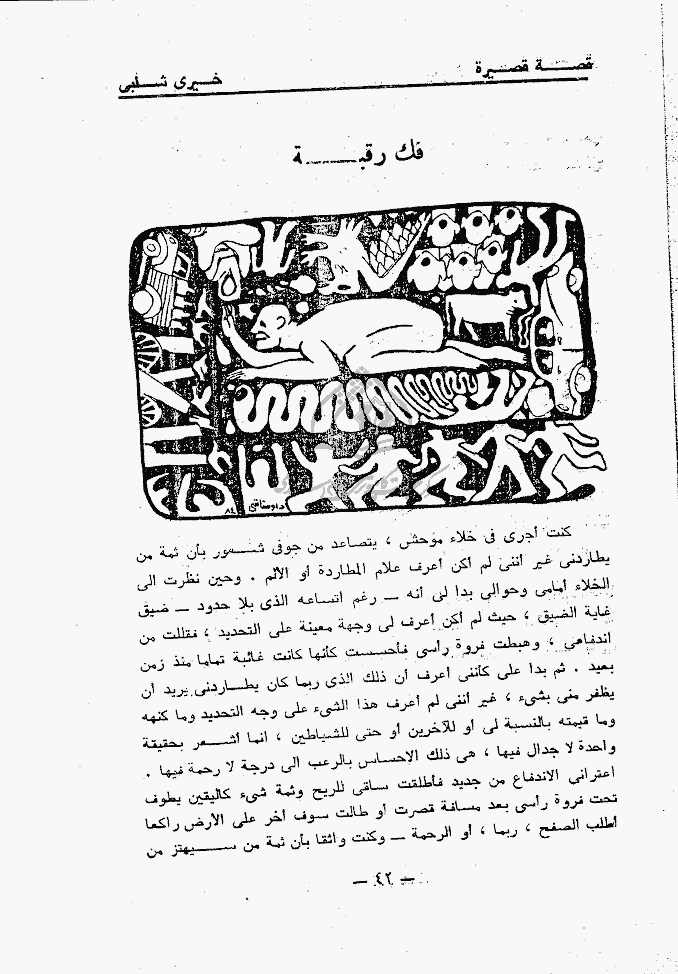 قصـــة قصـيرة
خـــيرى شـــلبى
فك رقبـــــة
داود مناقبى
٨٤
كنت أجرى فى خلاء موحش ، يتصاعد من جوفى شــعور بأن ثمة من
يطاردنى غير أننى لم أكن أعرف علام المطاردة أو الألم . وحين نظرت الى
الخلاء أمامى وحوالى بدا لى أنه — رغم اتساعه الذى بلا حدود — ضيق
غاية الضيق ، حيث لم أكن أعرف لى وجهة معينة على التحديد ، فقللت من
اندفاعى ، وهبطت فروة رأسى فأحسست كأنها كانت غائبة تماما منذ زمن
بعيد . ثم بدا على كأننى أعرف أن ذلك الذى ربما كان يطـــاردنى يريد أن
يظفر منى بشىء ، غير أننى لم أعرف هذا الشىء على وجه التحديد وما كنهه
وما قيمته بالنسبة لى أو للآخرين أو حتى للشياطين ، انما أشـــعر بحقيقة
واحدة لا جدال فيها ، هى ذلك الاحساس بالرعب الى درجة لا رحمة فيها .
اعترانى الاندفاع من جديد فأطلقت ساقى للريح وثمة شىء كاليقين يطوف
تحت فروة رأسى بعد مسافة قصرت أو طالت سوف أخر على الأرض راكعا
أطلب الصفح ، ربما ، أو الرحمة — وكنت واثقا بأن ثمة من ســـيهتز من
— ٤٢ —